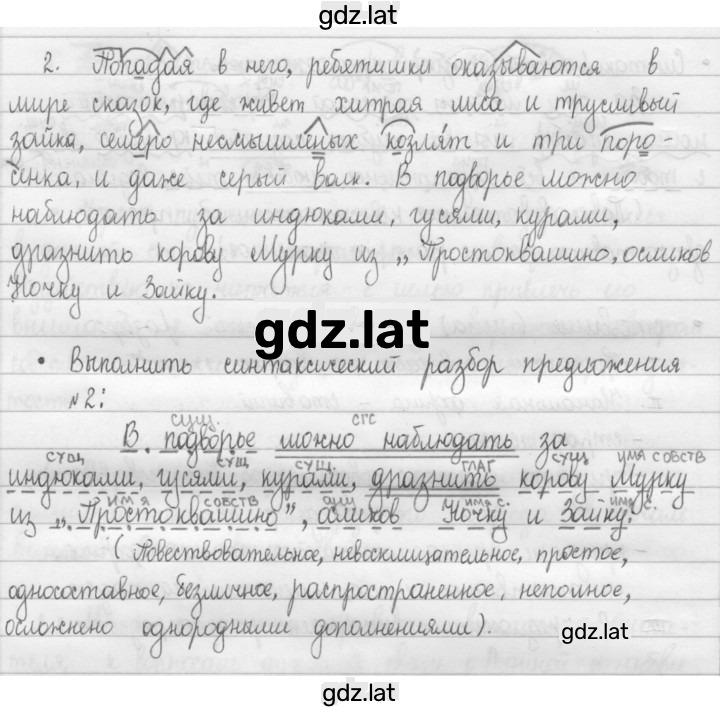 gdz.lat
2. Попадая в него, ребятишки оказываются в
мире сказок, где живет хитрая лиса и трусливый
зайка, семеро несмышленых козлят и три поро
сенка, и даже серый волк. В подворье можно
наблюдать за индюками, гусями, курами,
дразнить корову Мурку из „Простоквашино, осликов
Ночку и Зайку.
gdz.lat
• Выполнить синтаксический разбор предложения
№2:
сущ. СГС
В подворье можно наблюдать за
сущ сущ сущ. глаг сущ. имя собств
индюками, гусями, курами, дразнить корову Мурку
имя собств сущ имя с. имя с.
из „Простоквашино", осликов Ночку и Зайку.
(Повествовательное, невосклицательное, простое,
односоставное, безличное, распространенное, неполное,
осложнено однородными дополнениями).
gdz.lat
gdz.lat